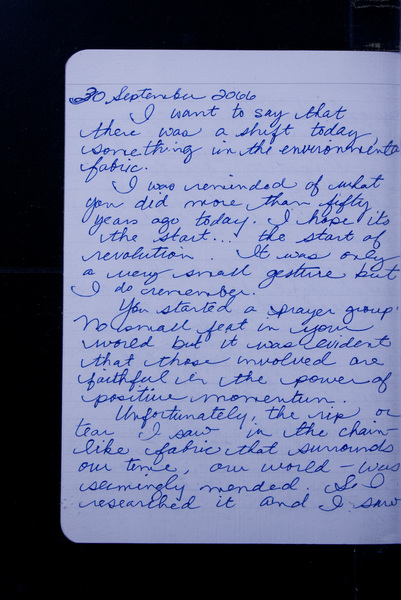 30 September 2066
I want to say that
there was a shift today,
something in the environmental
fabric.
I was reminded of what
you did more than fifty
years ago today. I hope its
the start... the start of
revolution. It was only
a very small gesture but
I do remember.
You started a prayer group.
No small feat in your
world but it was evident
that those involved are
faithful in the power of
positive momentum.
Unfortunately, the rip or
tear I saw in the chain-
like fabric that surrounds
our time, our world - was
seemingly mended. So I
researched it and I saw